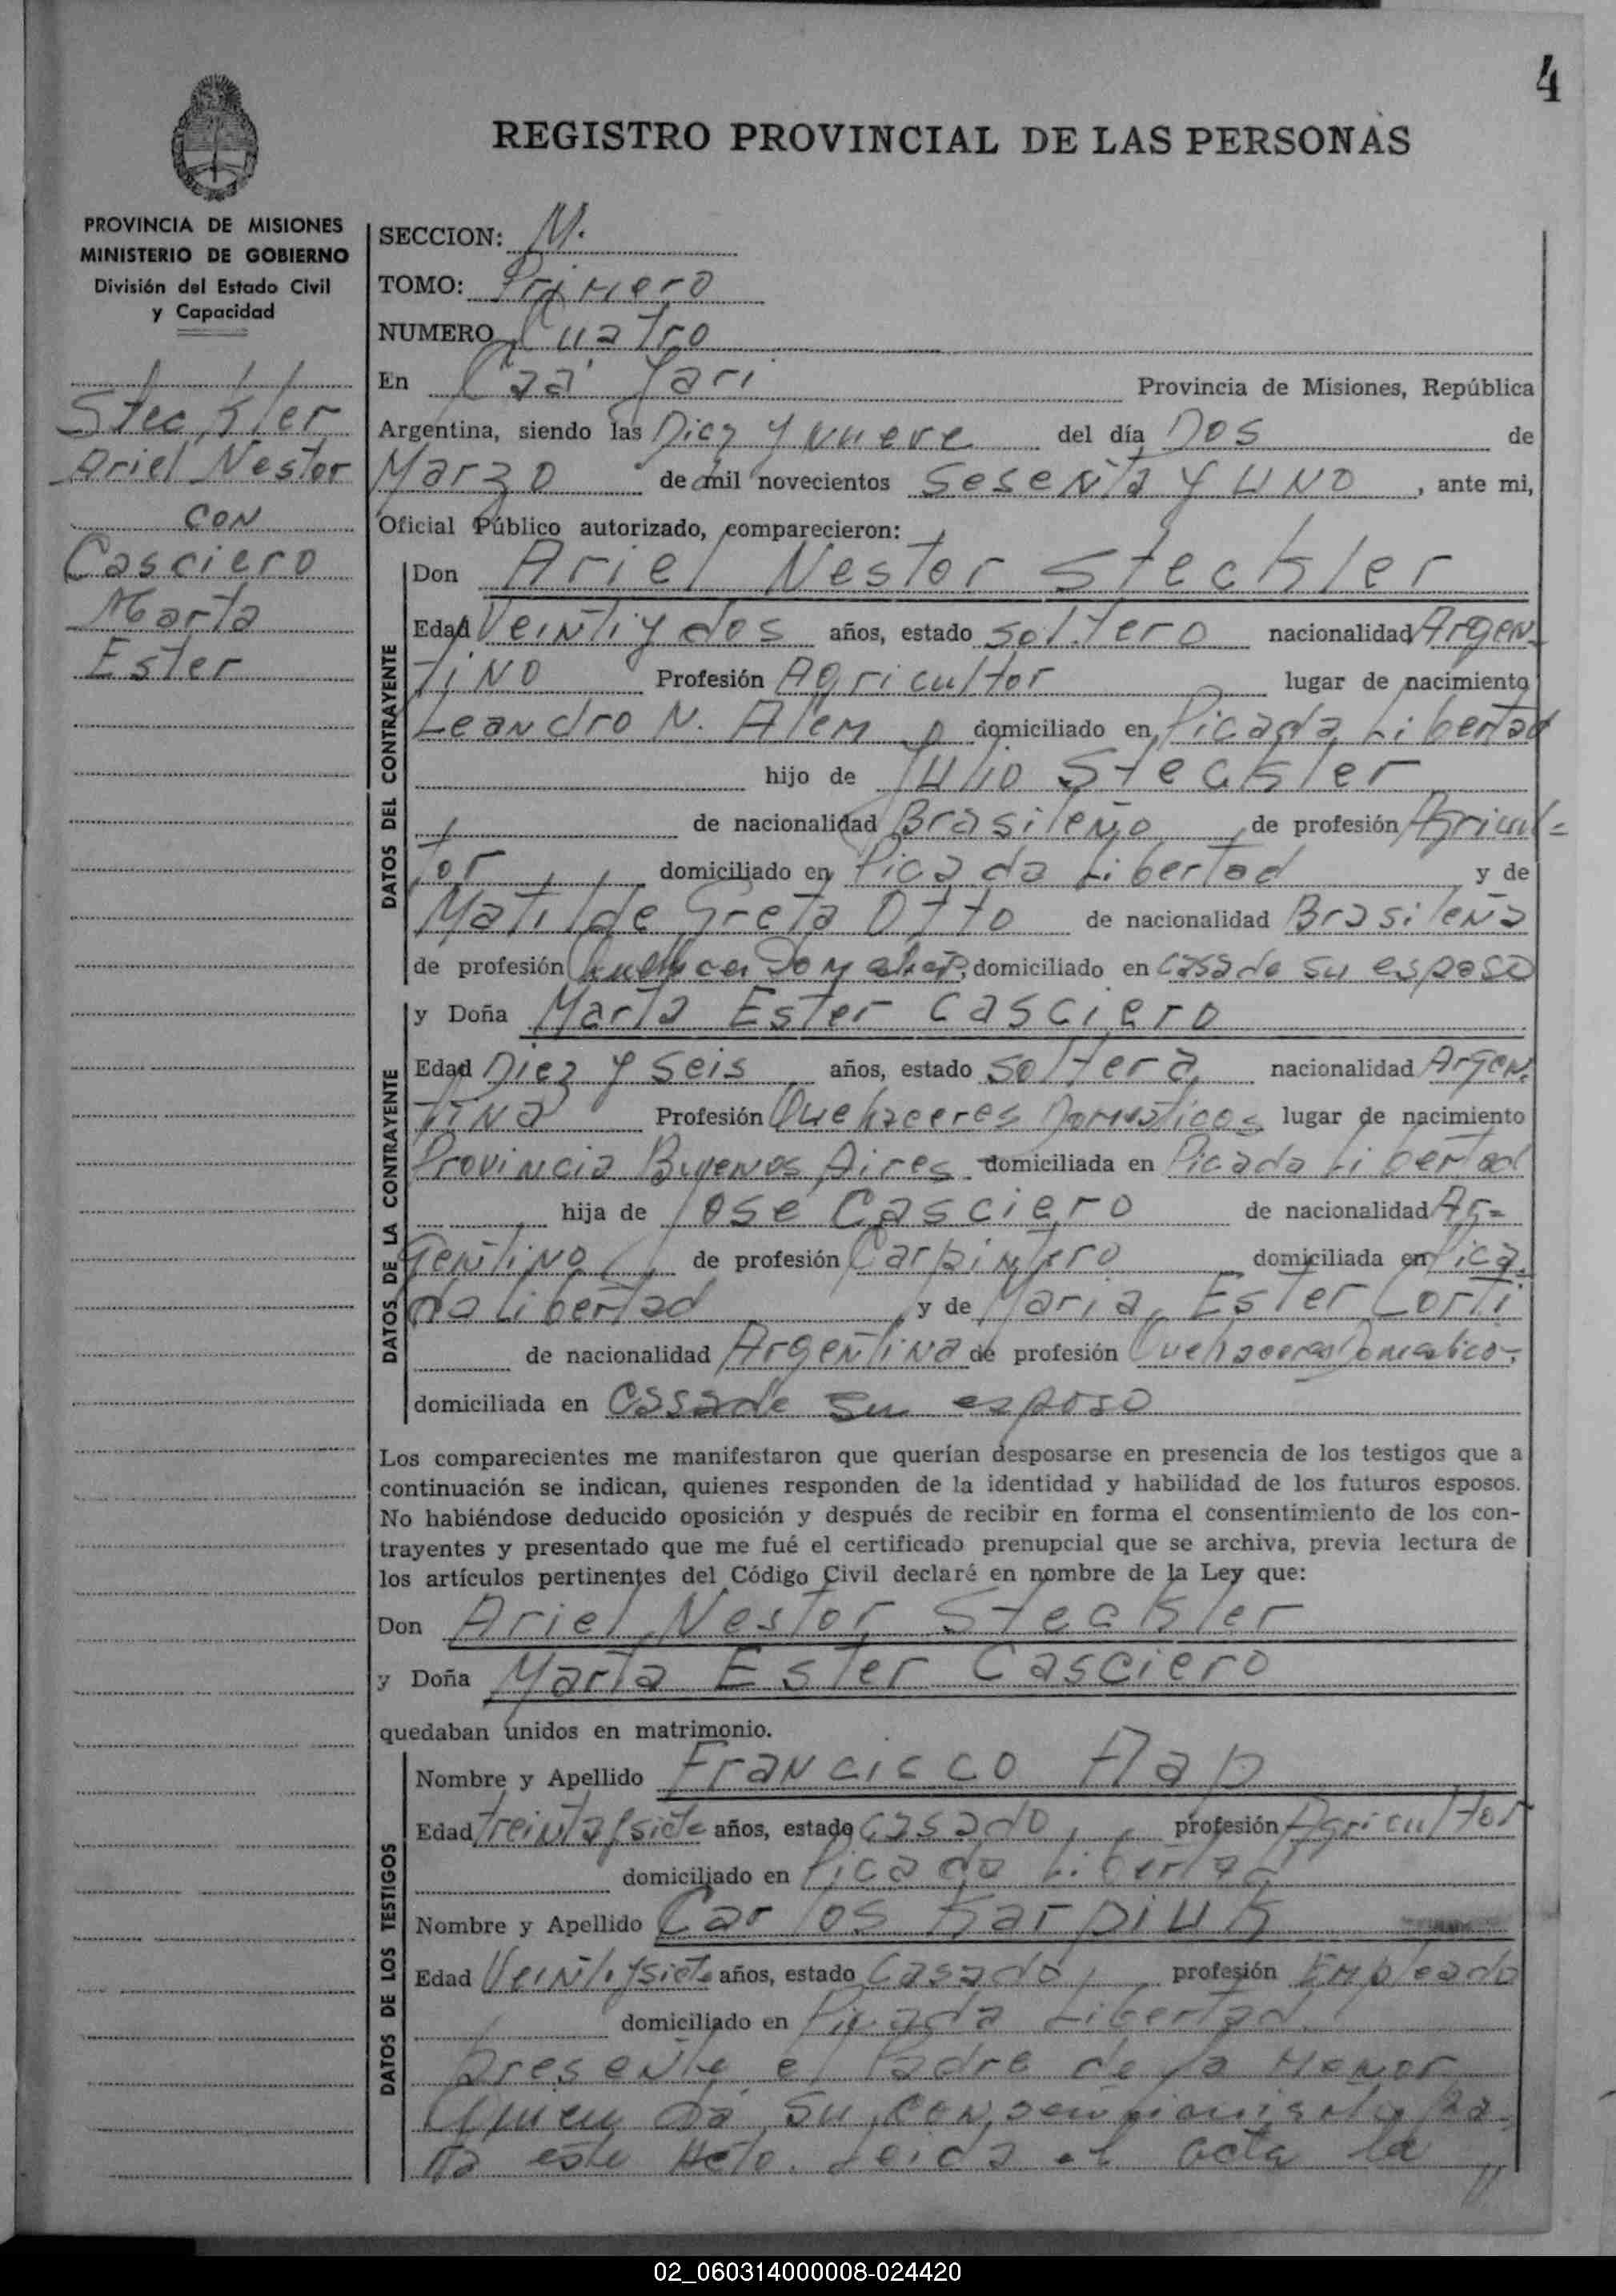 4
REGISTRO PROVINCIAL DE LAS PERSONAS
PROVINCIA DE MISIONES
MINISTERIO DE GOBIERNO
División del Estado Civil
y Capacidad
Steckler
Ariel Nestor
CON
Casciero
Marta
Ester
SECCION: M.
TOMO: Primero
NUMERO Cuatro
En Caá Yari Provincia de Misiones, República
Argentina, siendo las Diez y nueve del día Dos de
Marzo de mil novecientos sesenta y uno, ante mi,
Oficial Público autorizado, comparecieron:
DATOS DEL CONTRAYENTE
Don Ariel Nestor Steckler
Edad Veintiydos años, estado soltero nacionalidad Argen-
tino Profesión Agricultor lugar de nacimiento
Leandro N. Alem domiciliado en Picada Libertad
hijo de Julio Steckler
de nacionalidad Brasileño de profesión Agricul=
tor domiciliado en Picada Libertad y de
Matilde Greta Otto de nacionalidad Brasileña
de profesión domiciliado en casa de su esposo
DATOS DE LA CONTRAYENTE
y Doña Marta Ester Casciero
Edad Diez y seis años, estado soltera nacionalidad Argen-
tina Profesión Quehaceres Domesticos lugar de nacimiento
Provincia Buenos Aires domiciliada en Picada Libertad
hija de Jose Casciero de nacionalidad Ar=
gentino de profesión Carpintero domiciliada en Pica
da Libertad y de Maria Ester Corti
de nacionalidad Argentina de profesión Quehaceres Domestico-
domiciliada en casa de su esposo
Los comparecientes me manifestaron que querían desposarse en presencia de los testigos que a
continuación se indican, quienes responden de la identidad y habilidad de los futuros esposos.
No habiéndose deducido oposición y después de recibir en forma el consentimiento de los con-
trayentes y presentado que me fué el certificado prenupcial que se archiva, previa lectura de
los artículos pertinentes del Código Civil declaré en nombre de la Ley que:
Don Ariel Nestor Steckler
y Doña Marta Ester Casciero
quedaban unidos en matrimonio.
DATOS DE LOS TESTIGOS
Nombre y Apellido Francisco
Edad treintaysiete años, estado casado profesión Agricultor
domiciliado en Picada Libertad
Nombre y Apellido Carlos Karpiuk
Edad Veintiysiete años, estado Casado profesión Empleado
domiciliado en Picada Libertad
Presente el Padre de la Menor
Quien da su consentimiento pa
ra este Acto. Leida el acta la
02_060314000008-024420